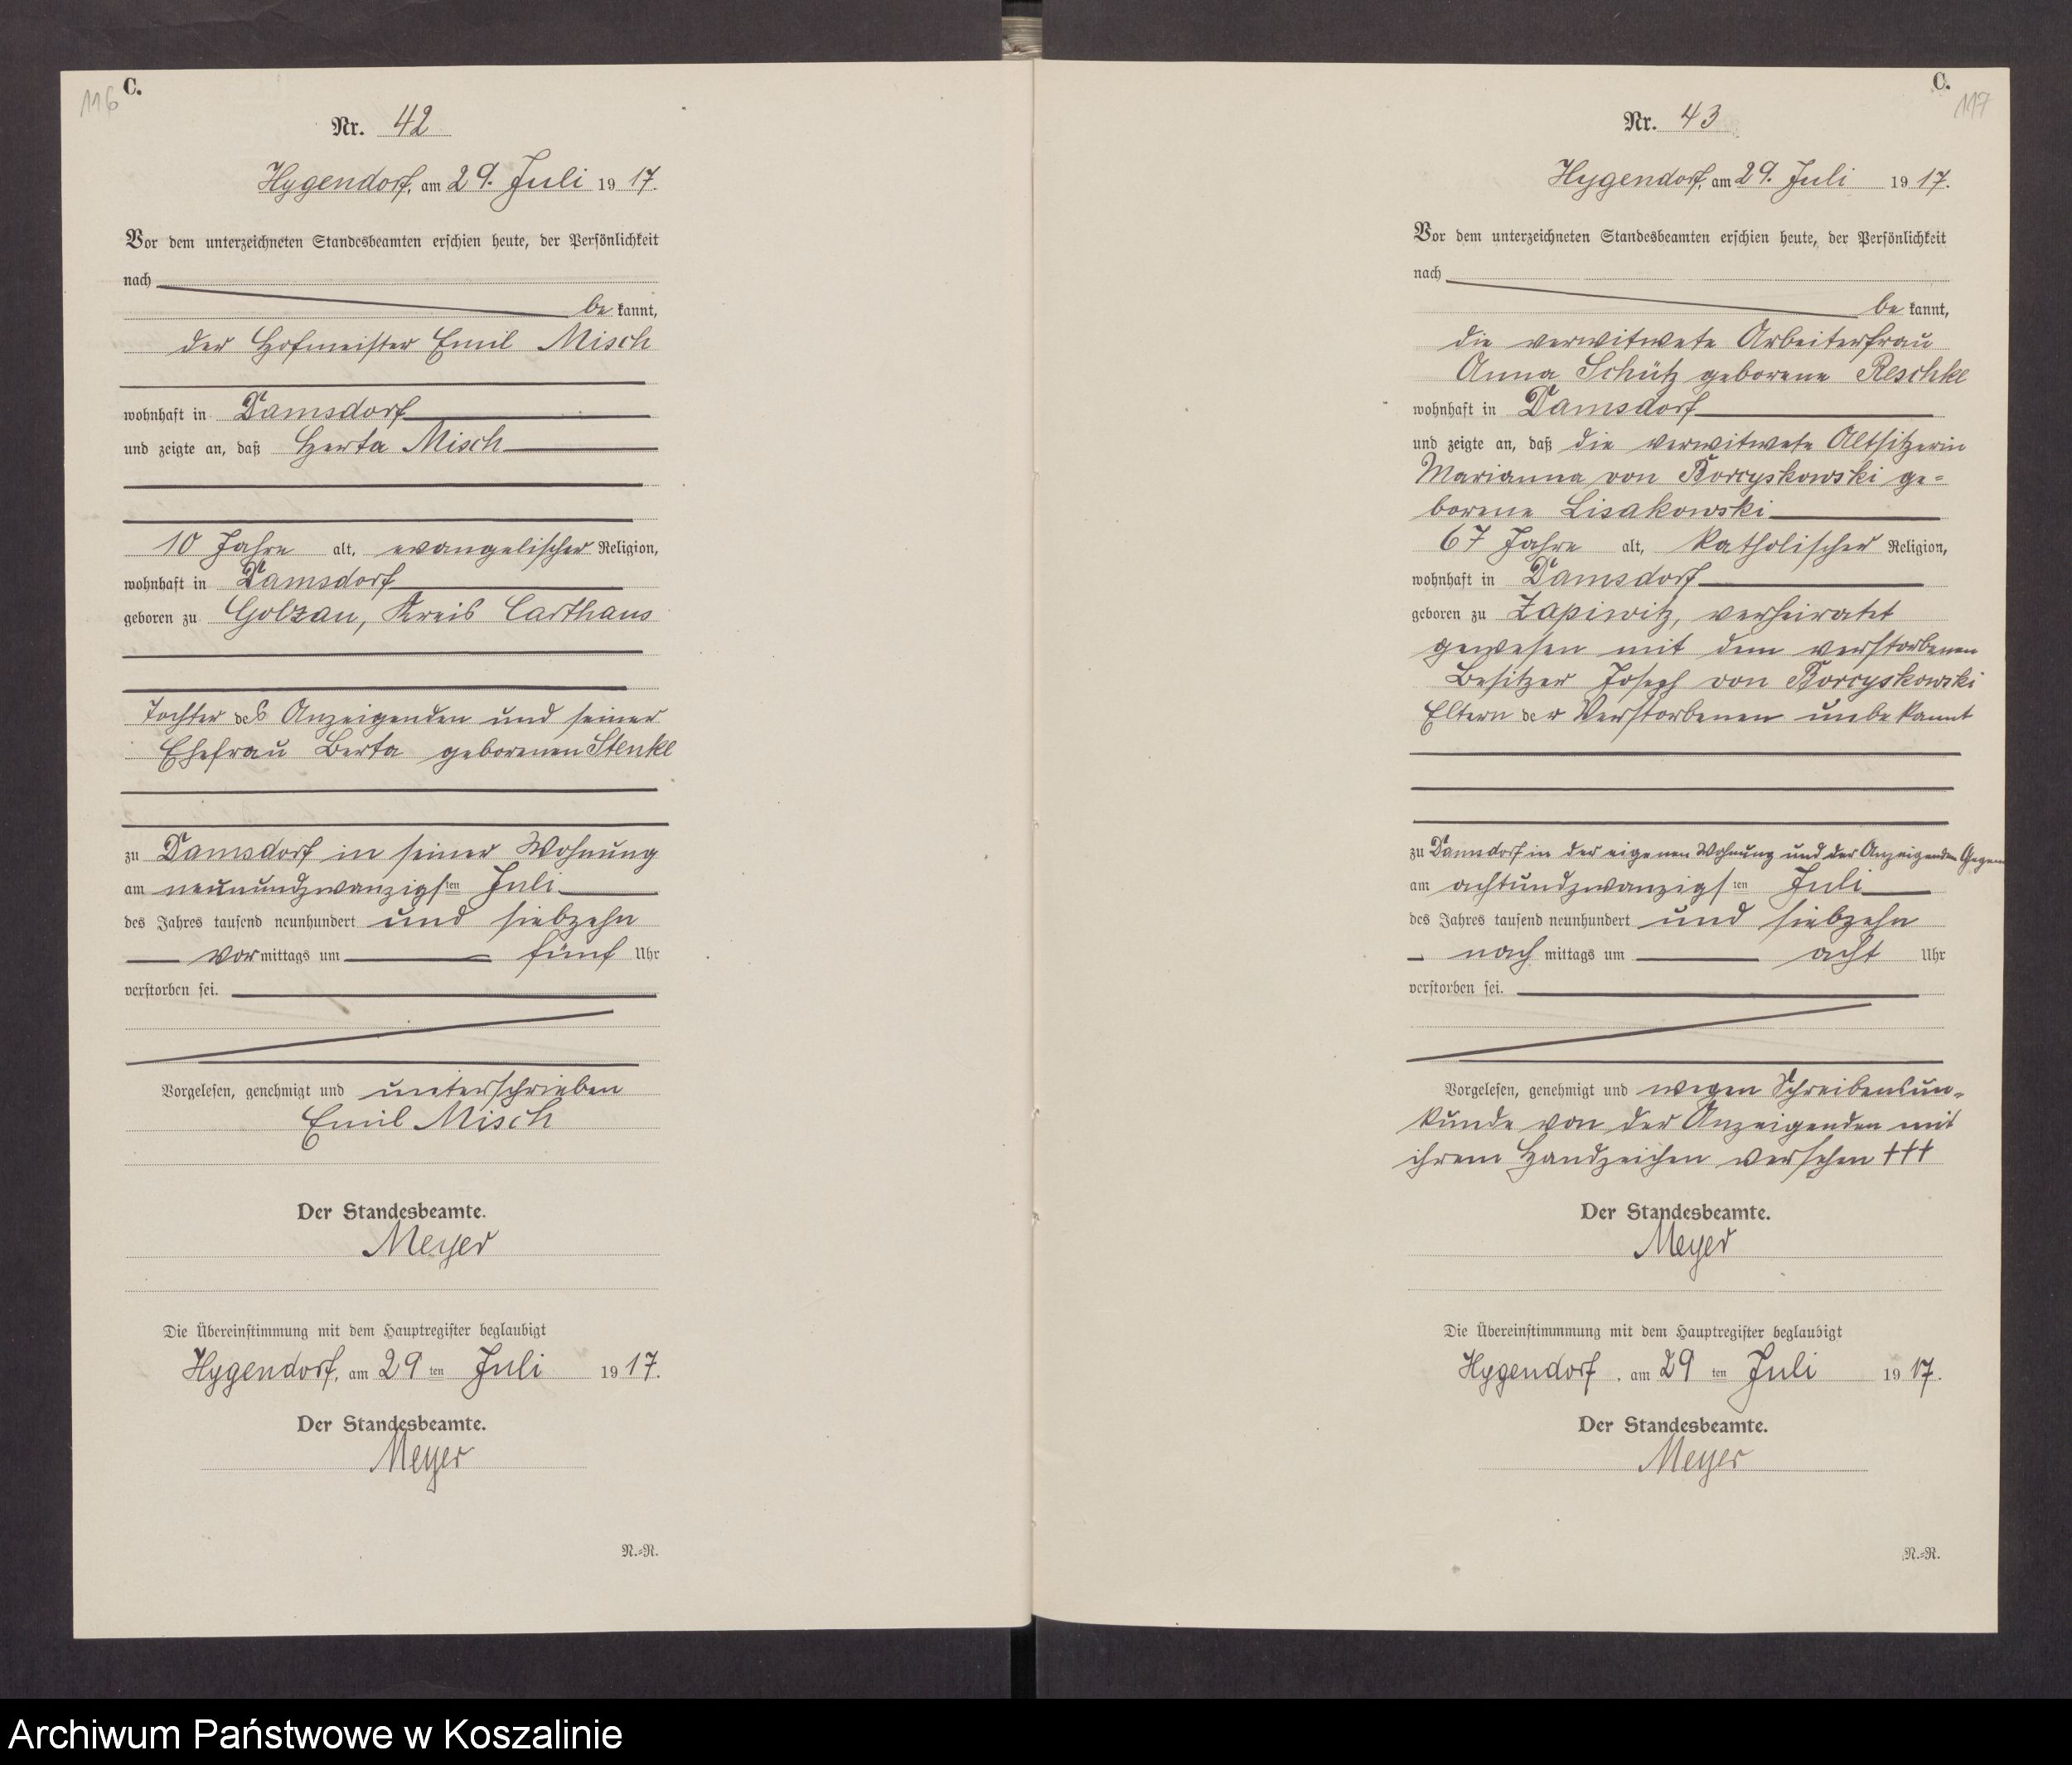 116
C.
Nr. 42
Hygendorf, am 29. Juli 1917.
Vor dem unterzeichneten Standesbeamten erschien heute, der Persönlichkeit
nach
be kannt,
der Hofmeister Emil Misch
wohnhaft in Damsdorf
und zeigte an, daß Herta Misch
10 Jahre alt, evangelischer Religion,
wohnhaft in Damsdorf
geboren zu Golzau, Kreis Carthaus
Tochter des Anzeigenden und seiner
Ehefrau Berta geborenen Stenke
zu Damsdorf in seiner Wohnung
am neunundzwanzigsten Juli
des Jahres tausend neunhundert und siebzehn
vormittags um fünf Uhr
verstorben sei.
Vorgelesen, genehmigt und unterschrieben
Emil Misch
Der Standesbeamte.
Meyer
Die Übereinstimmung mit dem Hauptregister beglaubigt
Hygendorf, am 29ten Juli 1917.
Der Standesbeamte.
Meyer
N.=R.
C.
117
Nr. 43
Hygendorf, am 29. Juli 1917.
Vor dem unterzeichneten Standesbeamten erschien heute, der Persönlichkeit
nach
be kannt,
die verwitwete Arbeiterfrau
Anna Schütz geborene Reschke
wohnhaft in Damsdorf
und zeigte an, daß die verwitwete Altsitzerin
Marianna von Borcyskowski ge=
borene Lisakowski
67 Jahre alt, katholischer Religion,
wohnhaft in Damsdorf
geboren zu Zapiwitz, verheiratet
gewesen mit dem verstorbenen
Besitzer Joseph von Borcyskowski
Eltern der Verstorbenen unbekannt
zu Damsdorf in der eigenen Wohnung und der Anzeigenden Gegenw
am achtundzwanzigsten Juli
des Jahres tausend neunhundert und siebzehn
nachmittags um acht Uhr
verstorben sei.
Vorgelesen, genehmigt und wegen Schreibensun=
kunde von der Anzeigenden mit
ihrem Handzeichen versehen +++
Der Standesbeamte.
Meyer
Die Übereinstimmmung mit dem Hauptregister beglaubigt
Hygendorf, am 29ten Juli 1917.
Der Standesbeamte.
Meyer
N.=R.
Archiwum Państwowe w Koszalinie